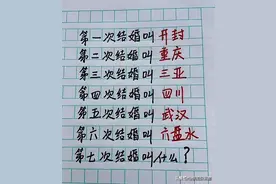 第一次结婚叫开封
第二次结婚叫重庆
第三次结婚叫三亚
第四次结婚叫四川
第五次结婚叫武汉
第六次结婚叫六盘水
第七次结婚叫什么?